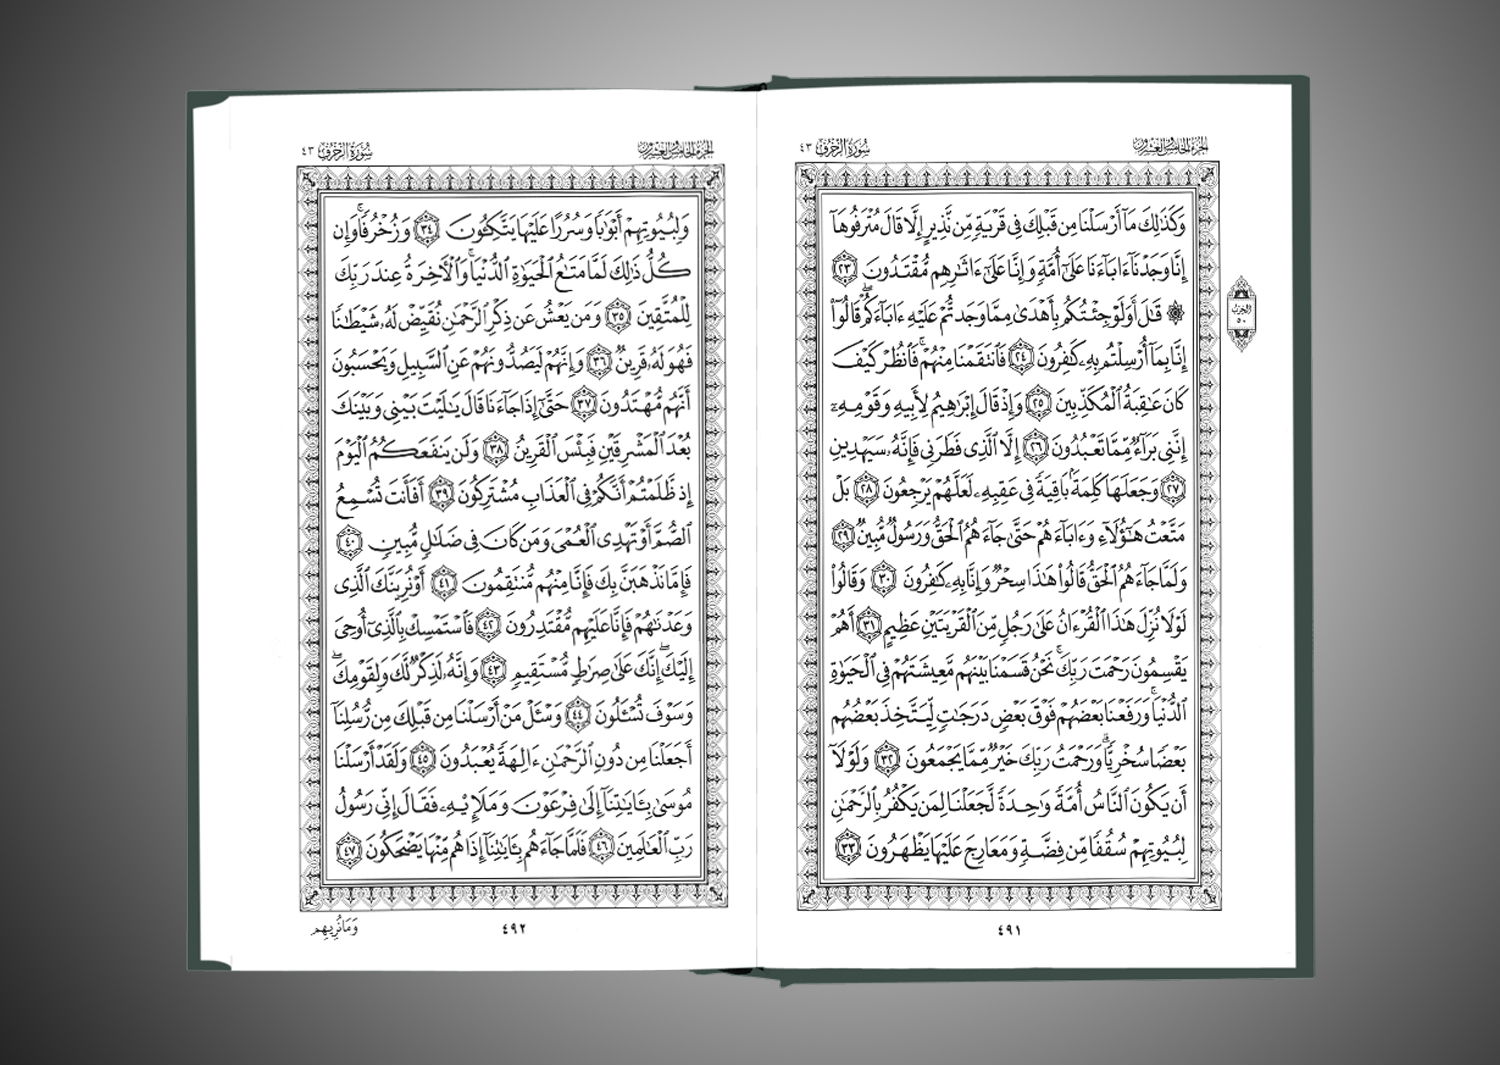 الجزء الخامس والعشرون
سورة الزخرف ٤٣
وَكَذَٰلِكَ مَآ أَرْسَلْنَا مِن قَبْلِكَ فِى قَرْيَةٍ مِّن نَّذِيرٍ إِلَّا قَالَ مُتْرَفُوهَآ
إِنَّا وَجَدْنَآ ءَابَآءَنَا عَلَىٰٓ أُمَّةٍ وَإِنَّا عَلَىٰٓ ءَاثَٰرِهِم مُّقْتَدُونَ ٢٣
۞ قَٰلَ أَوَلَوْ جِئْتُكُم بِأَهْدَىٰ مِمَّا وَجَدتُّمْ عَلَيْهِ ءَابَآءَكُمْ ۖ قَالُوٓا۟
إِنَّا بِمَآ أُرْسِلْتُم بِهِۦ كَٰفِرُونَ ٢٤ فَٱنتَقَمْنَا مِنْهُمْ ۖ فَٱنظُرْ كَيْفَ
كَانَ عَٰقِبَةُ ٱلْمُكَذِّبِينَ ٢٥ وَإِذْ قَالَ إِبْرَٰهِيمُ لِأَبِيهِ وَقَوْمِهِۦٓ
إِنَّنِى بَرَآءٌ مِّمَّا تَعْبُدُونَ ٢٦ إِلَّا ٱلَّذِى فَطَرَنِى فَإِنَّهُۥ سَيَهْدِينِ
٢٧ وَجَعَلَهَا كَلِمَةًۢ بَاقِيَةً فِى عَقِبِهِۦ لَعَلَّهُمْ يَرْجِعُونَ ٢٨ بَلْ
مَتَّعْتُ هَٰٓؤُلَآءِ وَءَابَآءَهُمْ حَتَّىٰ جَآءَهُمُ ٱلْحَقُّ وَرَسُولٌ مُّبِينٌ ٢٩
وَلَمَّا جَآءَهُمُ ٱلْحَقُّ قَالُوا۟ هَٰذَا سِحْرٌ وَإِنَّا بِهِۦ كَٰفِرُونَ ٣٠ وَقَالُوا۟
لَوْلَا نُزِّلَ هَٰذَا ٱلْقُرْءَانُ عَلَىٰ رَجُلٍ مِّنَ ٱلْقَرْيَتَيْنِ عَظِيمٍ ٣١ أَهُمْ
يَقْسِمُونَ رَحْمَتَ رَبِّكَ ۚ نَحْنُ قَسَمْنَا بَيْنَهُم مَّعِيشَتَهُمْ فِى ٱلْحَيَوٰةِ
ٱلدُّنْيَا ۚ وَرَفَعْنَا بَعْضَهُمْ فَوْقَ بَعْضٍ دَرَجَٰتٍ لِّيَتَّخِذَ بَعْضُهُم
بَعْضًا سُخْرِيًّا ۗ وَرَحْمَتُ رَبِّكَ خَيْرٌ مِّمَّا يَجْمَعُونَ ٣٢ وَلَوْلَآ
أَن يَكُونَ ٱلنَّاسُ أُمَّةً وَٰحِدَةً لَّجَعَلْنَا لِمَن يَكْفُرُ بِٱلرَّحْمَٰنِ
لِبُيُوتِهِمْ سُقُفًا مِّن فِضَّةٍ وَمَعَارِجَ عَلَيْهَا يَظْهَرُونَ ٣٣
الحزب
٥٠
٤٩١
الجزء الخامس والعشرون
سورة الزخرف ٤٣
وَلِبُيُوتِهِمْ أَبْوَٰبًا وَسُرُرًا عَلَيْهَا يَتَّكِـُٔونَ ٣٤ وَزُخْرُفًا ۚ وَإِن
كُلُّ ذَٰلِكَ لَمَّا مَتَٰعُ ٱلْحَيَوٰةِ ٱلدُّنْيَا ۚ وَٱلْءَاخِرَةُ عِندَ رَبِّكَ
لِلْمُتَّقِينَ ٣٥ وَمَن يَعْشُ عَن ذِكْرِ ٱلرَّحْمَٰنِ نُقَيِّضْ لَهُۥ شَيْطَٰنًا
فَهُوَ لَهُۥ قَرِينٌ ٣٦ وَإِنَّهُمْ لَيَصُدُّونَهُمْ عَنِ ٱلسَّبِيلِ وَيَحْسَبُونَ
أَنَّهُم مُّهْتَدُونَ ٣٧ حَتَّىٰٓ إِذَا جَآءَنَا قَالَ يَٰلَيْتَ بَيْنِى وَبَيْنَكَ
بُعْدَ ٱلْمَشْرِقَيْنِ فَبِئْسَ ٱلْقَرِينُ ٣٨ وَلَن يَنفَعَكُمُ ٱلْيَوْمَ
إِذ ظَّلَمْتُمْ أَنَّكُمْ فِى ٱلْعَذَابِ مُشْتَرِكُونَ ٣٩ أَفَأَنتَ تُسْمِعُ
ٱلصُّمَّ أَوْ تَهْدِى ٱلْعُمْىَ وَمَن كَانَ فِى ضَلَٰلٍ مُّبِينٍ ٤٠
فَإِمَّا نَذْهَبَنَّ بِكَ فَإِنَّا مِنْهُم مُّنتَقِمُونَ ٤١ أَوْ نُرِيَنَّكَ ٱلَّذِى
وَعَدْنَٰهُمْ فَإِنَّا عَلَيْهِم مُّقْتَدِرُونَ ٤٢ فَٱسْتَمْسِكْ بِٱلَّذِىٓ أُوحِىَ
إِلَيْكَ ۖ إِنَّكَ عَلَىٰ صِرَٰطٍ مُّسْتَقِيمٍ ٤٣ وَإِنَّهُۥ لَذِكْرٌ لَّكَ وَلِقَوْمِكَ ۖ
وَسَوْفَ تُسْـَٔلُونَ ٤٤ وَسْـَٔلْ مَنْ أَرْسَلْنَا مِن قَبْلِكَ مِن رُّسُلِنَآ
أَجَعَلْنَا مِن دُونِ ٱلرَّحْمَٰنِ ءَالِهَةً يُعْبَدُونَ ٤٥ وَلَقَدْ أَرْسَلْنَا
مُوسَىٰ بِـَٔايَٰتِنَآ إِلَىٰ فِرْعَوْنَ وَمَلَإِي۟هِۦ فَقَالَ إِنِّى رَسُولُ
رَبِّ ٱلْعَٰلَمِينَ ٤٦ فَلَمَّا جَآءَهُم بِـَٔايَٰتِنَآ إِذَا هُم مِّنْهَا يَضْحَكُونَ ٤٧
٤٩٢
وَمَا نُرِيهِم